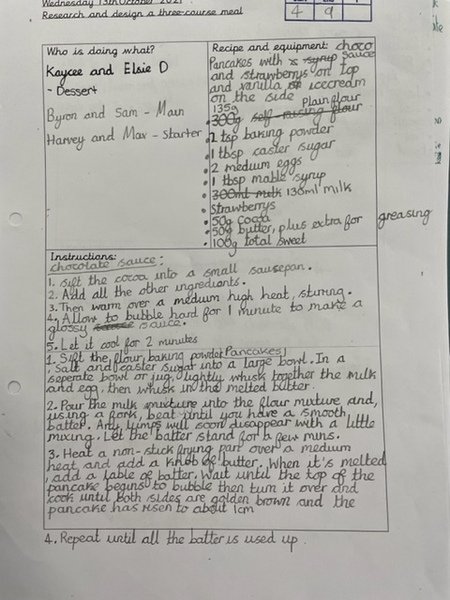 Wednesday 13th October 2021
Research and design a three-course meal
4 9
Who is doing what?
Kaycee and Elsie D
- Dessert
Byron and Sam - Main
Harvey and Max - Starter
Recipe and equipment: choco
Pancakes with syrup sauce
and strawberrys on top
and vanilla icecream
on the side
135g Plain flour
300g self-raising flour
1 tsp baking powder
1 tbsp caster sugar
2 medium eggs
1 tbsp mable syrup
300ml milk 130ml milk
Strawberrys
50g cocoa
50g butter, plus extra for greasing
100g total sweet
Instructions:
chocolate sauce:
1. Sift the cocoa into a small sausepan.
2. Add all the other ingrediants.
3. Then warm over a medium high heat, sturing.
4. Allow to bubble hard for 1 minute to make a
glossy sauce sauce.
5. Let it cool for 2 minutes
Pancakes
1. Sift the flour, baking powder
, salt and caster sugar into a large bowl. In a
seperate bowl or jug, lightly whisk together the milk
and egg, then whisk in the melted butter.
2. Pour the milk mixture into the flour mixture and,
using a fork, beat until you have a smooth
batter. Any lumps will soon disappear with a little
mixing. Let the batter stand for a few mins.
3. Heat a non-stick frying pan over a medium
heat and add a knob of butter. When it's melted
, add a lable of batter. Wait until the top of the
pancake begins to bubble then turn it over and
cook until both sides are golden brown and the
pancake has risen to about 1cm
4. Repeat until all the batter is used up.